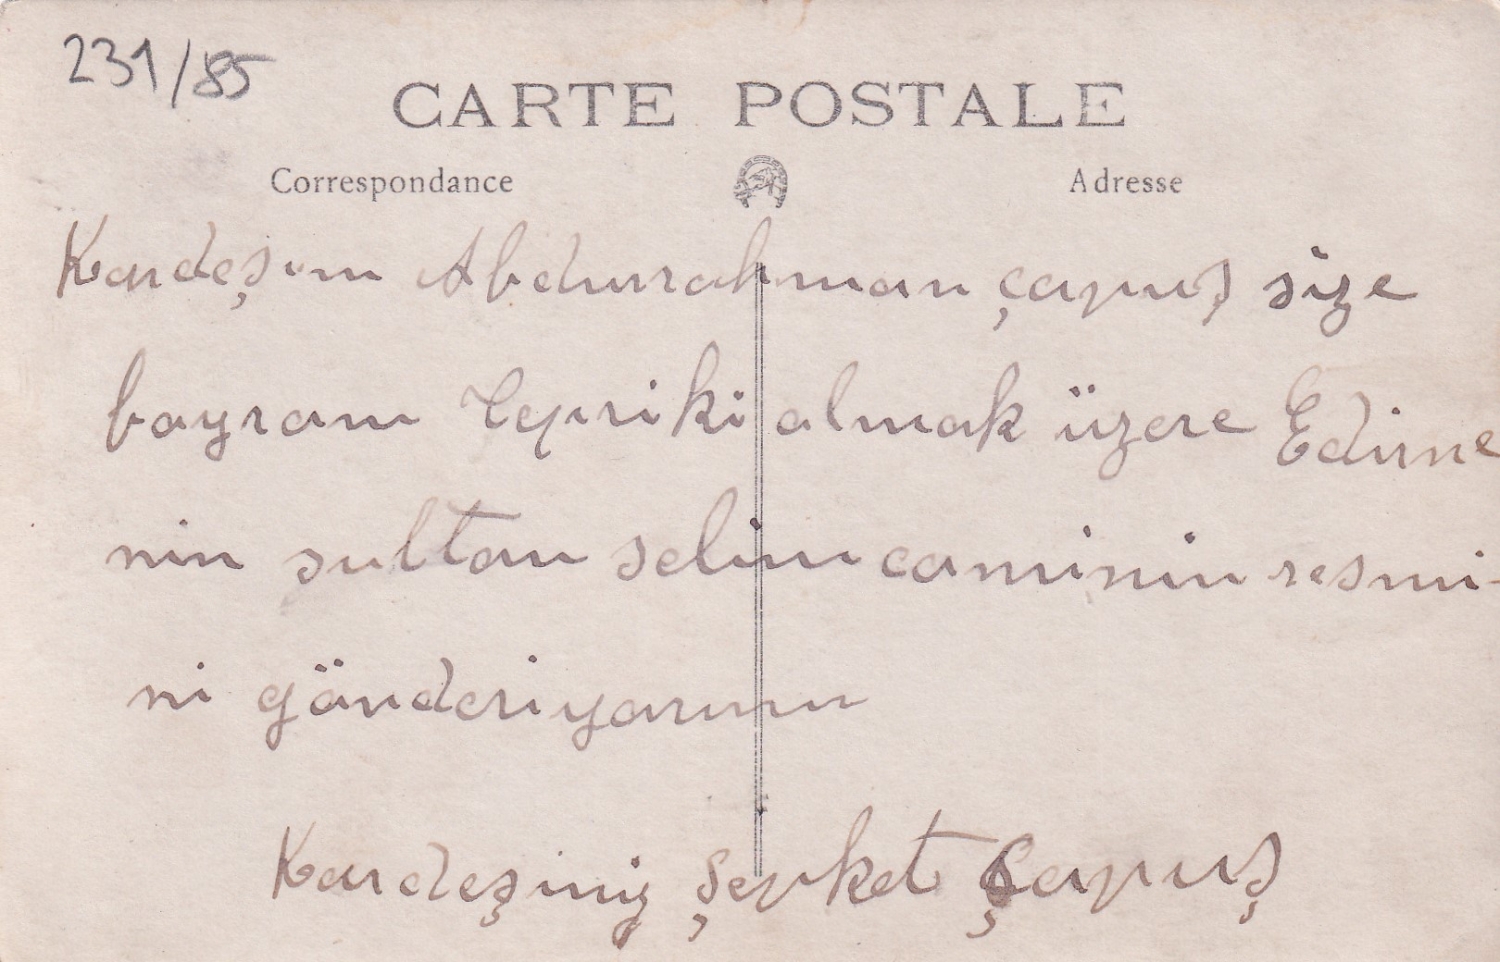 231/85
CARTE POSTALE
Correspondance Adresse
Kardeşım Abdurrahman çavuş size
bayram tepriki almak üzere Edirne
nin sultan selim caminin resmi-
ni gönderiyorum
Kardeşiniz Şevket Çavuş